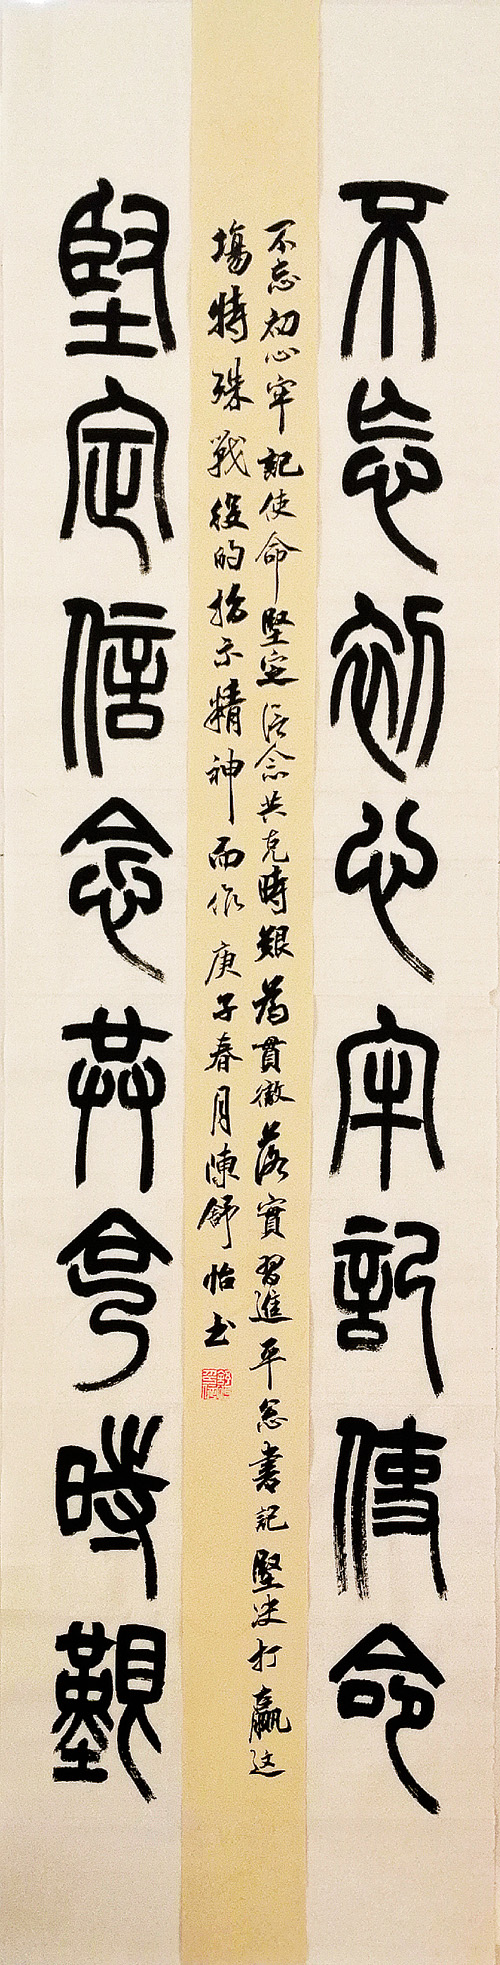 不忘初心牢記使命
不忘初心牢記使命堅定信念共克時艱為貫徹落實習進平总書記堅决打贏这
場特殊戰役的指示精神而作庚子春月陳舒怡书
堅定信念共克時艱